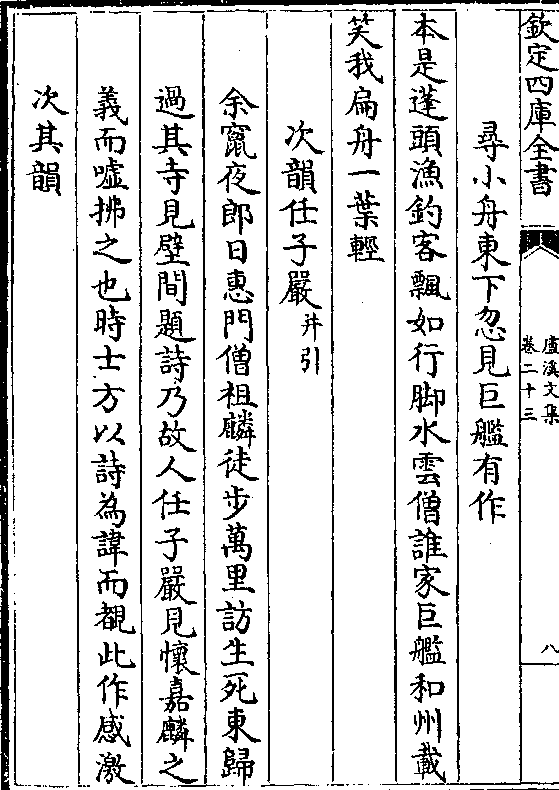 欽定四庫全書
盧溪文集
卷二十三
八
尋小舟東下忽見巨艦有作
本是蓬頭漁釣客飄如行脚水雲僧誰家巨艦和州載
笑我扁舟一葉輕
次韻任子嚴并引
余竄夜郎日惠門僧祖麟徒步萬里訪生死東歸
過其寺見壁間題詩乃故人任子嚴見懷嘉麟之
義而嘘拂之也時士方以詩為諱而覩此作感激
次其韻